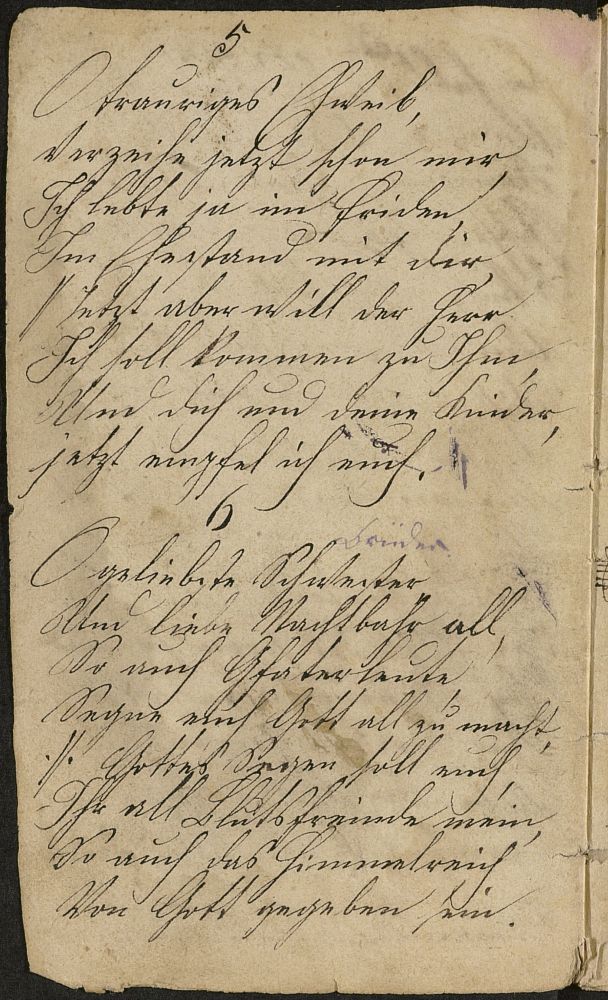 5
O trauriges Eheweib,
Verzeihe jetzt schon mir,
Ich lebte ja im Friden,
Im Ehestand mit dir,
// Jetzt aber will der Herr
Ich soll kommen zu Ihm,
Und dich und deine Kinder,
jetzt empfel ich euch.
6
Brüder
O geliebste Schwester
Und liebe Nachtbahr all,
So auch Gfaterleute
Segne euch Gott all zu macht,
.//. Gottes Segen soll euch
Ihr all Blutsfreinde mein,
So auch das Himmelreich
Von Gott gegeben sein.